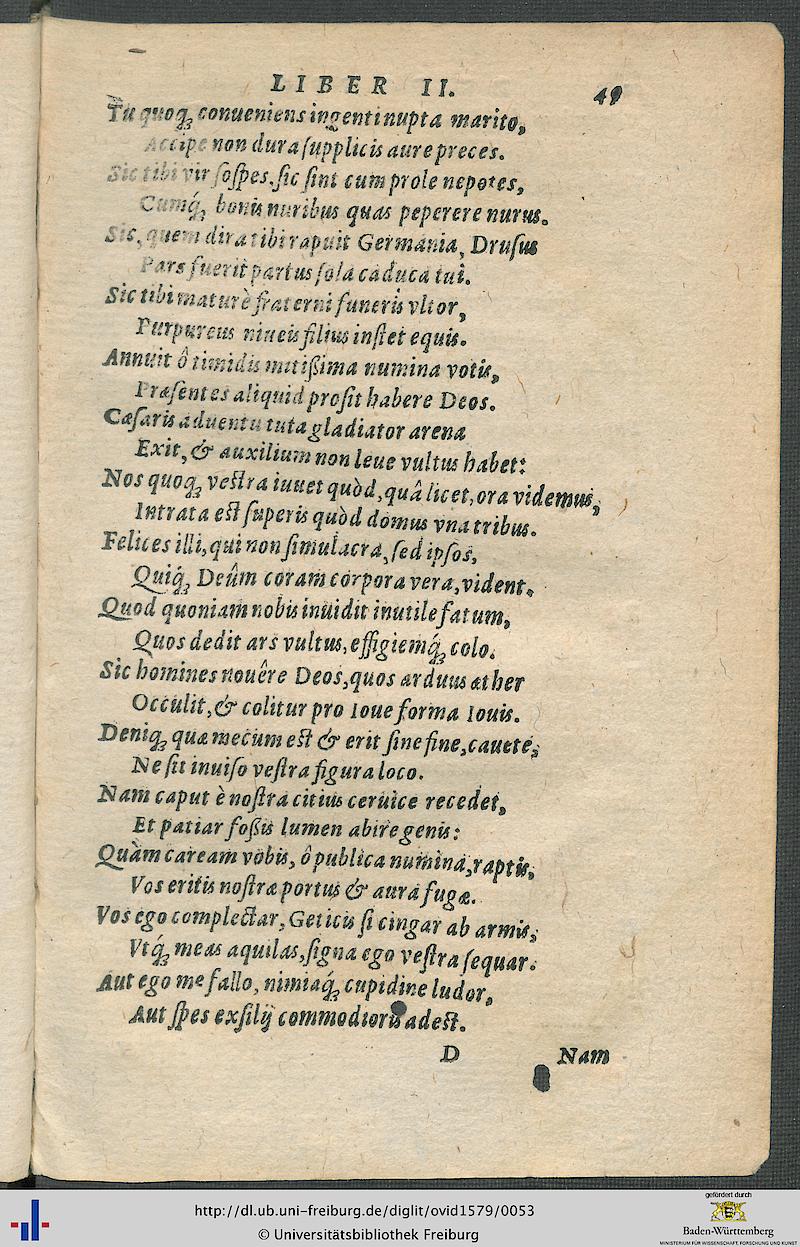 LIBER II. 49
Tu quoq; conueniens ingenti nupta marito,
Accipe non dura ſupplicis aure preces.
Sic tibi vir ſoſpes, ſic ſint cum prole nepotes,
Cumq́; bonis nuribus quas peperere nurus.
Sic, quem dira tibi rapuit Germania, Druſus
Pars fuerit partus ſola caduca tui.
Sic tibi maturè fraterni funeris vltor,
Purpureus niueis filius inſtet equis.
Annuit ô timidis mitißima numina votis,
Præſentes aliquid proſit habere Deos.
Cæſaris aduentu tuta gladiator arena
Exit, & auxilium non leue vultus habet:
Nos quoq; veſtra iuuet quòd, quâ licet, ora videmus,
Intrata eſt ſuperis quòd domus vna tribus.
Felices illi, qui non ſimulacra, ſed ipſos,
Quiq́; Deûm coram corpora vera, vident.
Quod quoniam nobis inuidit inutile fatum,
Quos dedit ars vultus, effigiemq́; colo.
Sic homines nouêre Deos, quos arduus æther
Occulit, & colitur pro Ioue forma Iouis.
Deniq; quæ mecum eſt & erit ſine fine, cauete,
Ne ſit inuiſo veſtra figura loco.
Nam caput è noſtra citius ceruice recedet,
Et patiar foßis lumen abire genis:
Quàm caream vobis, ô publica numina, raptis,
Vos eritis noſtræ portus & ara fugæ.
Vos ego complectar, Geticis ſi cingar ab armis,
Vtq́; meas aquilas, ſigna ego veſtra ſequar.
Aut ego me fallo, nimiaq́; cupidine ludor,
Aut ſpes exſilij commodioris adeſt.
D Nam
http://dl.ub.uni-freiburg.de/diglit/ovid1579/0053
© Universitätsbibliothek Freiburg
gefördert durch
Baden-Württemberg
MINISTERIUM FÜR WISSENSCHAFT, FORSCHUNG UND KUNST